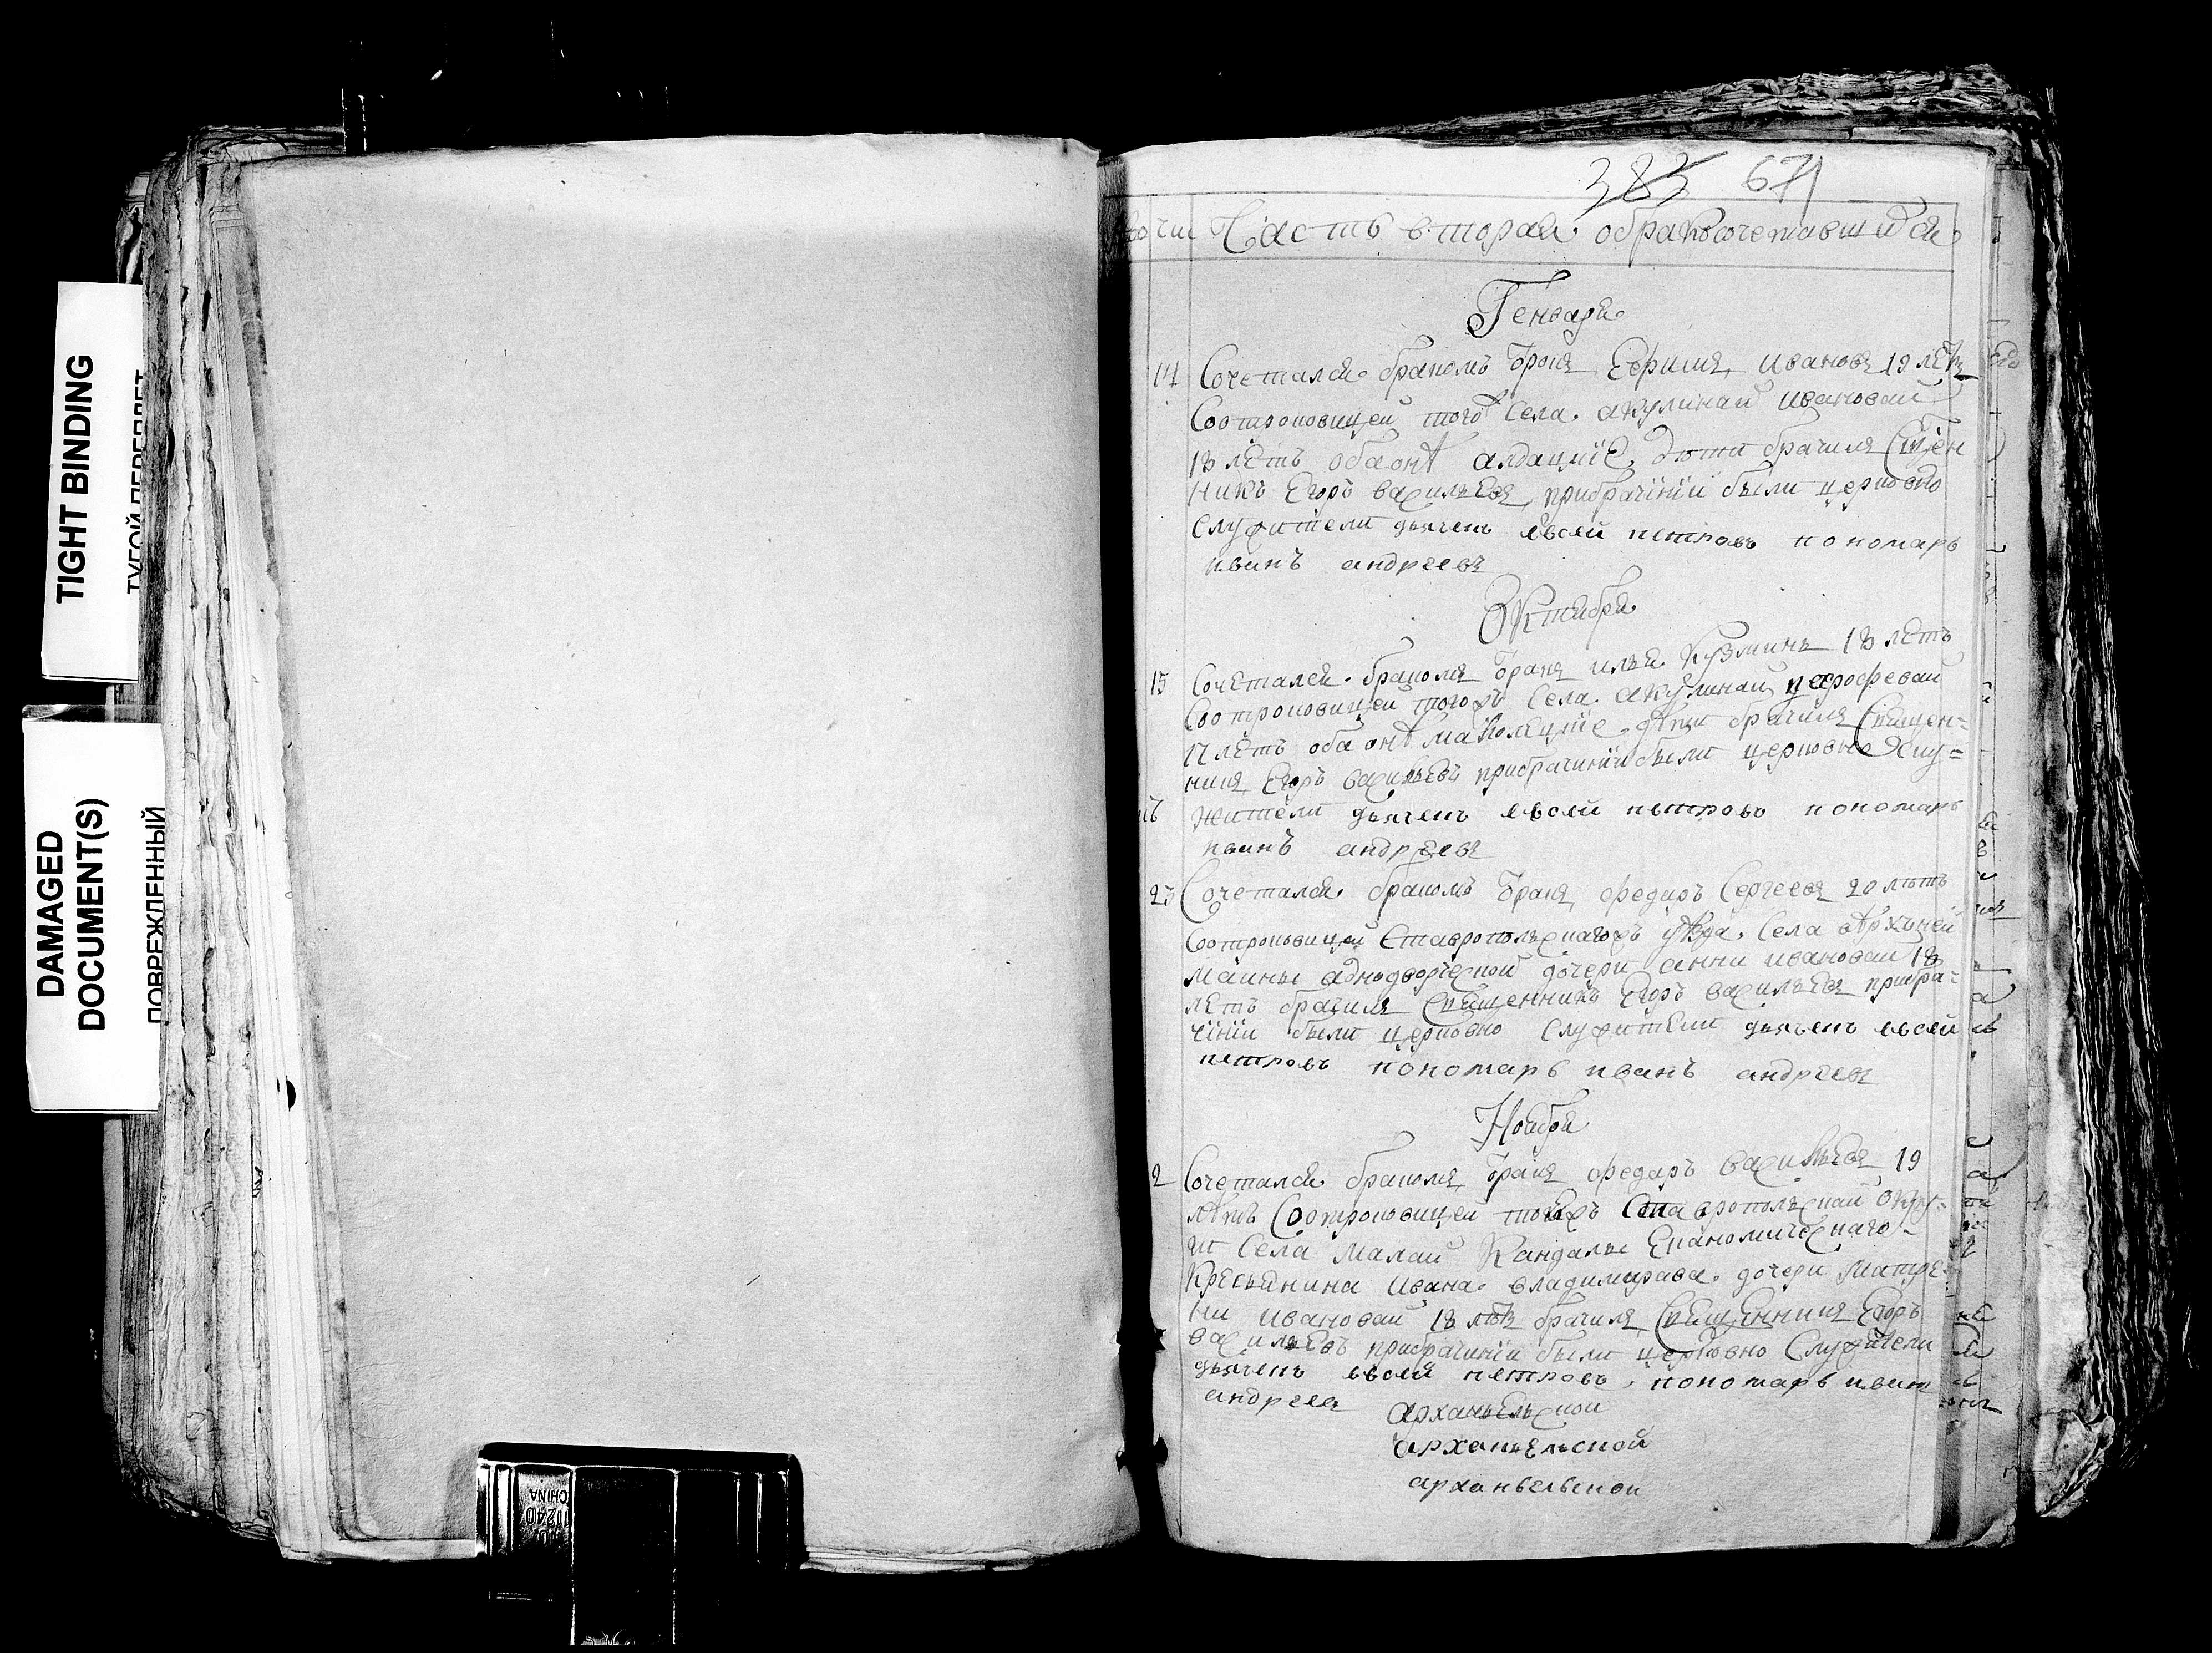 TIGHT BINDING
ТУГОЙ ПЕРЕПЛЕТ
DAMAGED
DOCUMENT(S)
ПОВРЕЖДЕННЫЙ
11240
CHINA
383 671
Часть вторая обракосочетавшихся
Генваря
14 Сочетался бракомъ Ефимъ Ивановъ 19 летъ
Соотроковицей тогожъ Села акулинай Ивановай
18 летъ обаонѣ дѣти брачилъ Сщен
никъ Егоръ васильевъ прибрачїнїи были церковно
служители дьячекъ евсей петровъ пономарь
иванъ андреевъ
Октября
15 Сочетался бракомъ илья Кузминъ 18 летъ
Соотроковицей тогожъ Села акулинай
17 летъ оба онѣ дѣти брачилъ Священ-
никъ Егоръ васильевъ прибрачинїи были церковно Слу=
жители дьячекъ евсей петровъ пономарь
иванъ андреевъ
23 Сочетался бракомъ федаръ Сергеевъ 20 лѣтъ
Соотроковицей Ставропольскагожъ уѣзда Села
маины аднодворческой дочери анни ивановай 18
летъ брачилъ Священникъ Егоръ васильевъ прибра-
чїнїи были церковно служители дьячекъ евсей
петровъ пономарь иванъ андреевъ
Ноября
2 Сочетался бракомъ федаръ васильевъ 19
лѣтъ Соотроковицей тоежъ Ставропольскай окру-
ги Села малай Кандалы Екановическаго
Крестьянина Ивана владимирава дочери Матре-
ни ивановай 18 летъ брачилъ Священникъ Егоръ
васильевъ прибрачинїи были церковно Служители
дьячекъ евсей петровъ пономарь иванъ
андреевъ архангельской
архангельской
архангельской